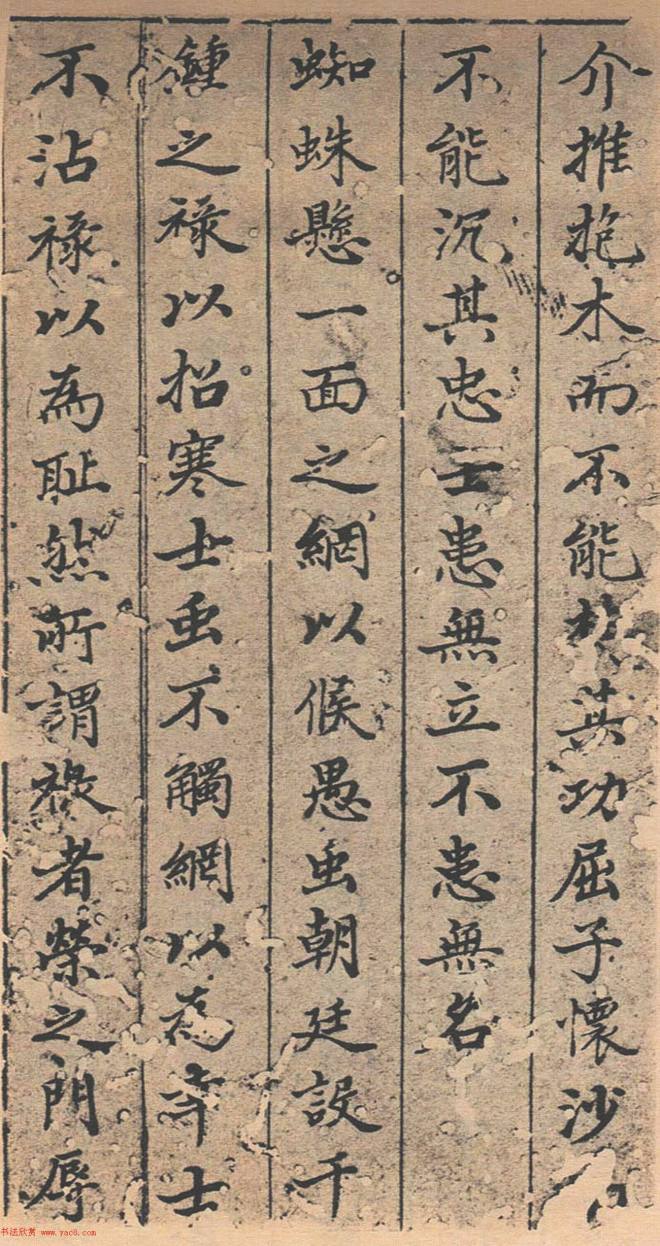 介推抱木而不能其功屈子懷沙
不能沉其忠士患無立不患無名
蜘蛛懸一面之網以候愚虫朝廷設千
鍾之祿以招寒士虫不觸網以為奇士
不沾祿以為耻然所謂祿者榮之門辱
书法欣赏 www.yac8.com